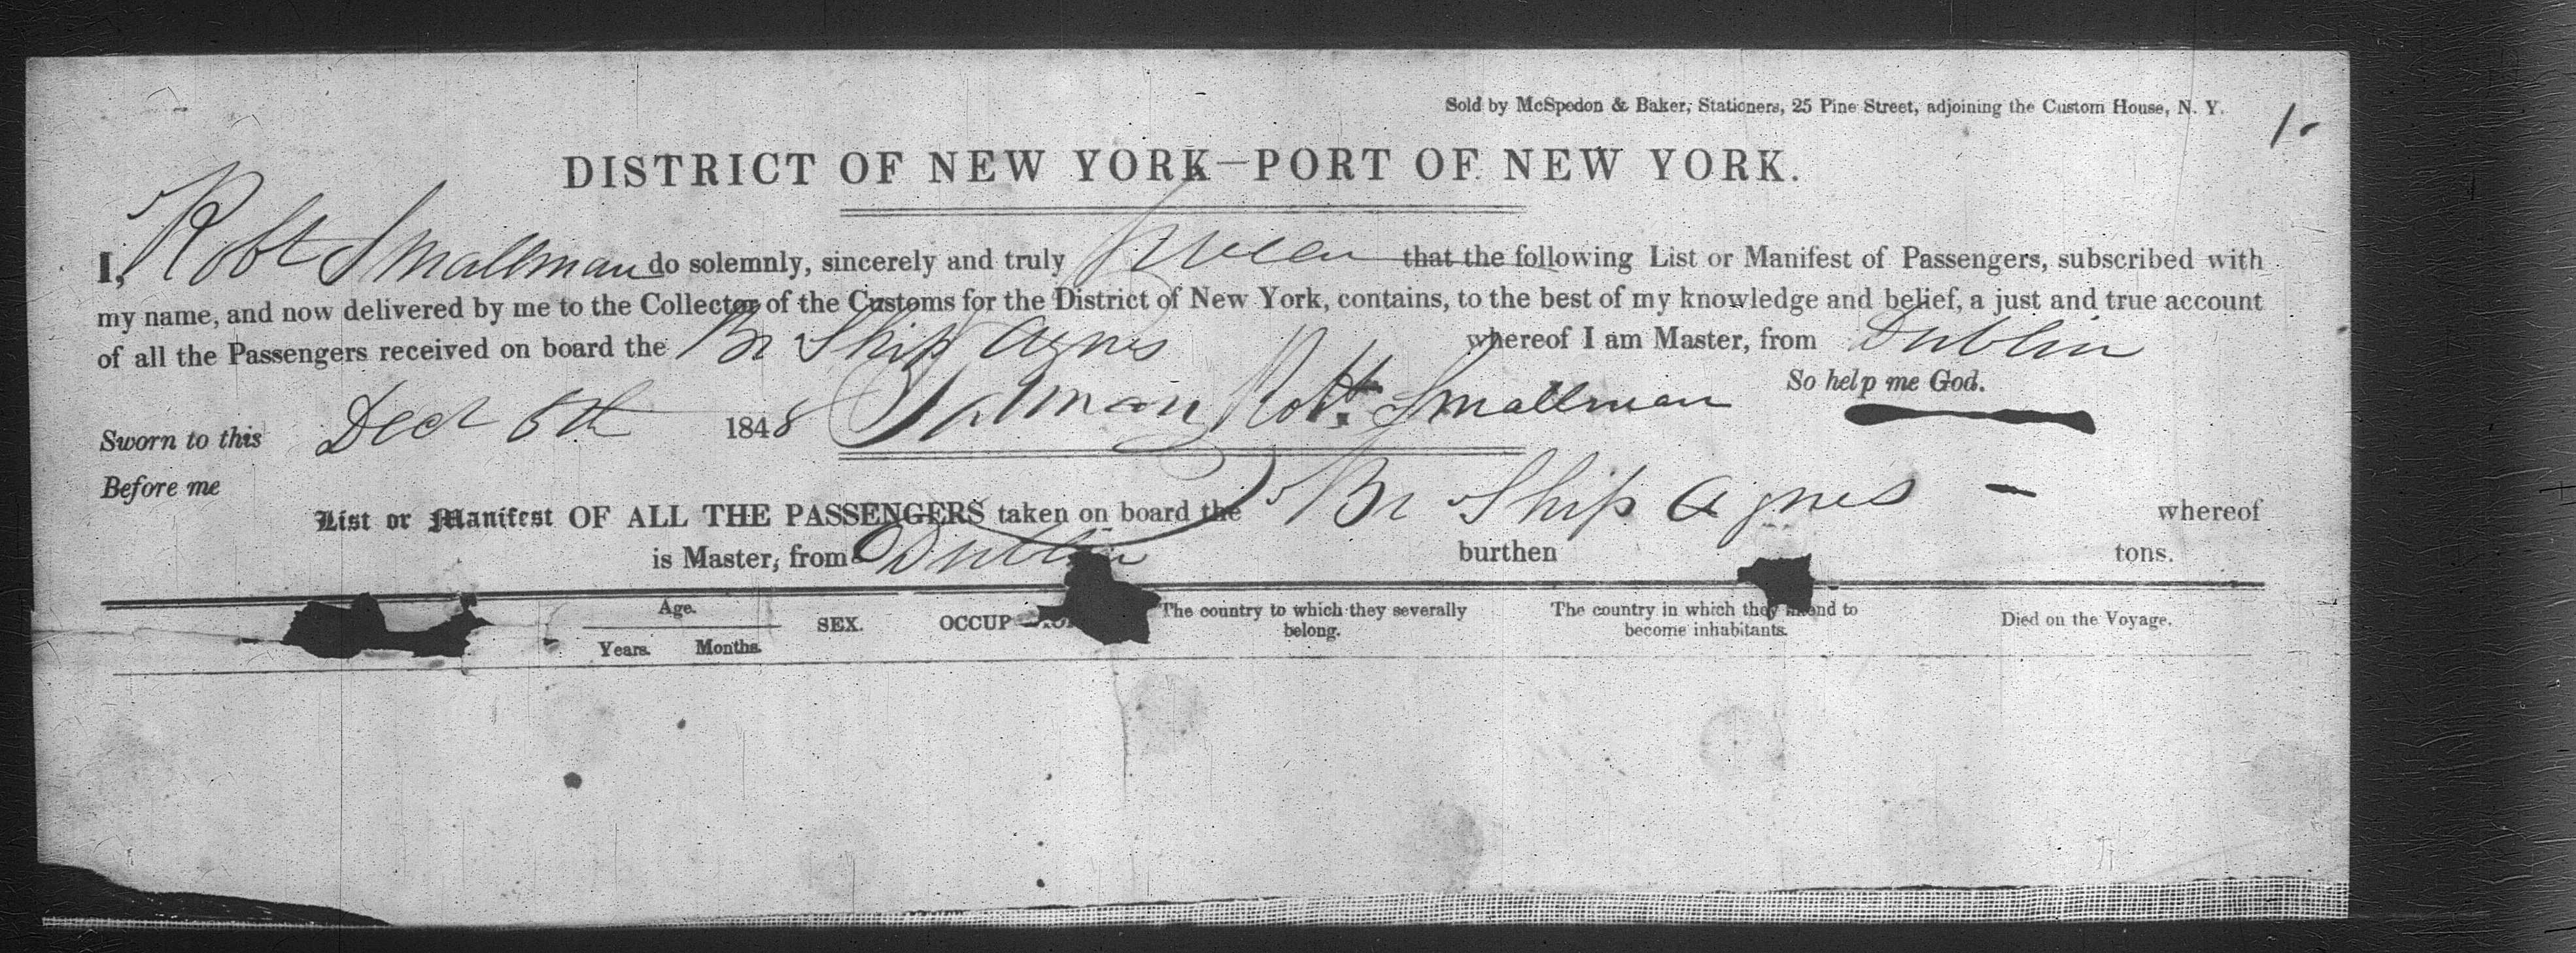 Sold by McSpedon & Baker, Stationers, 25 Pine Street, adjoining the Custom House, N. Y.
1.
DISTRICT OF NEW YORK—PORT OF NEW YORK.
I, Robt Smallman do solemnly, sincerely and truly swear that the following List or Manifest of Passengers, subscribed with
my name, and now delivered by me to the Collector of the Customs for the District of New York, contains, to the best of my knowledge and belief, a just and true account
of all the Passengers received on board the Br Ship Agnes whereof I am Master, from Dublin
So help me God.
Sworn to this Decr 6th 1848 Robt Smallman
Before me
List or Manifest OF ALL THE PASSENGERS taken on board the Br Ship Agnes — whereof
is Master, from Dublin burthen tons.
Age. SEX. OCCUP The country to which they severally belong. The country in which they intend to become inhabitants. Died on the Voyage.
Years. Months.